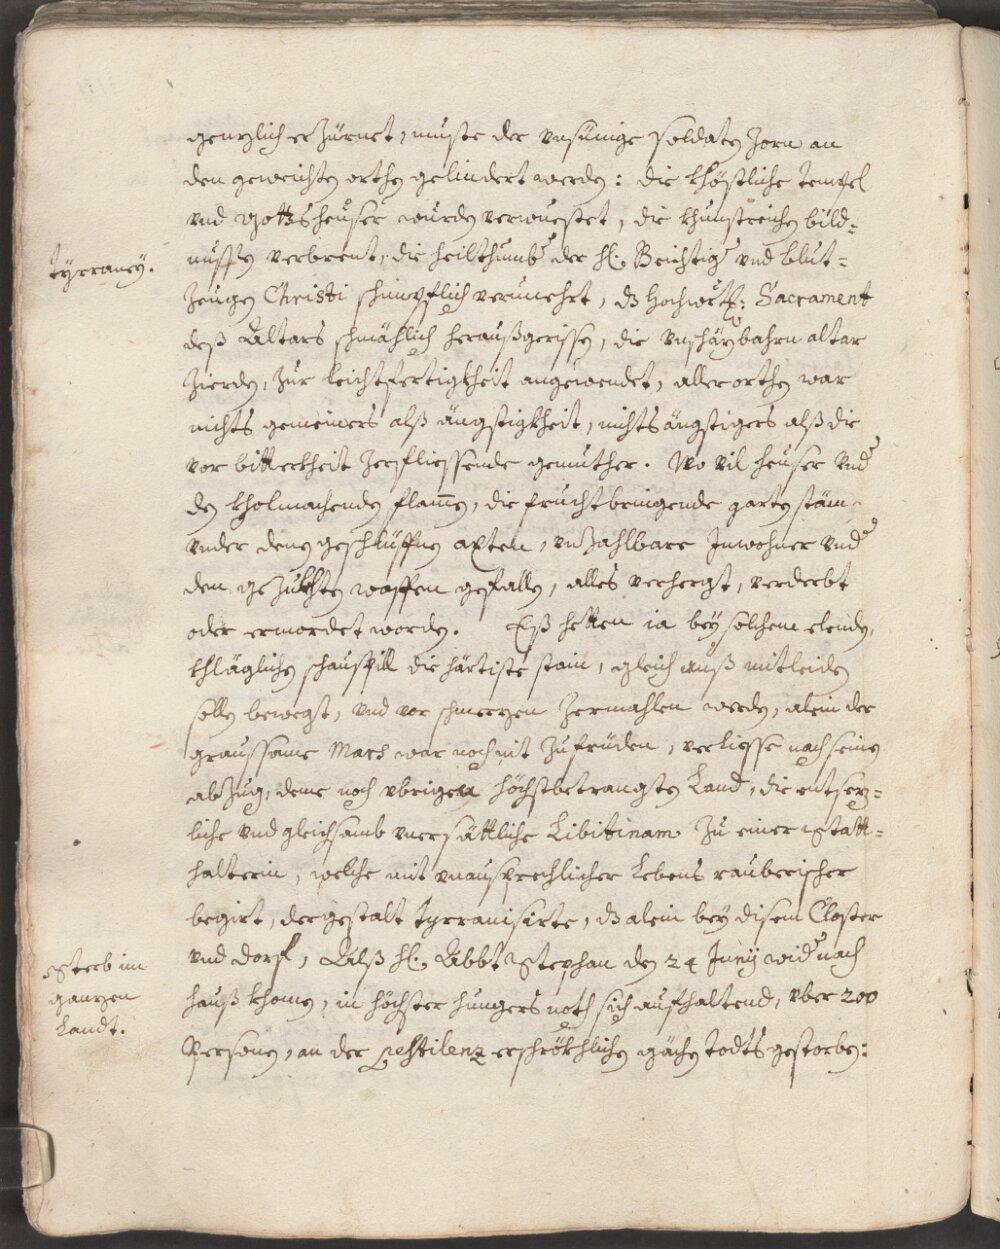 genzlich erzürnet, muste der unsinige Soldaten Zorn an
den geweichten orthen gelindert werden: die khöstliche Tempel
und Gottsheuser wurden verwuestet, die khunstreichen bild-
nussen verbrent, die heilthumb der hl. Beichtig. und blut-
Tyrraney.
Zeugen Christi schimpflich verunehrt, dz Hochwür: Sacrament
deß Altars schmählich heraußgerissen, die unschäzbahrn altar
Zierden, zur leichtfertigkheit angewendet, aller orthen war
nichts gemeiners alß ängstigkheit, nichts ängstigers alß die
vor bitterkheit zerfliessende gemüther. Wo vil heuser und
den kholmachenden flamen, die fruchtbringende garten stäm
under denen geschliffnen axten, unzahlbare Inwohner und
dem gezukhten waffen gefallen, alles verhergt, verderbt
oder ermordet worden. Eß hetten ia bey solchem elenden,
khläglichen schauspill die härtiste stain, gleich auß mitleiden
sollen bewegt, und vor schmerzen zermahlen werden, alein der
graussame Mars war noch nit zufrüden, verliesse nach seinen
abzug, deme noch ubrigen höchstbetrangten Land, die entsez-
liche und gleichsamb unersättliche Libitinam zu einer Statt-
halterin, welche mit unausprechlicher Lebens rauberischer
begirt, dergestalt Tyrranisirte, dz alein bey disem Closter
und dorf, Alß hl. Abbt Stephan den 24 Junij wid. nach
Sterb im
ganzen
Landt.
hauß khomen, in höchster hungers noth sich aufhaltend, uber 200
Personen, an der Pestilenz erschrökhlichen gächen Todts gestorben: